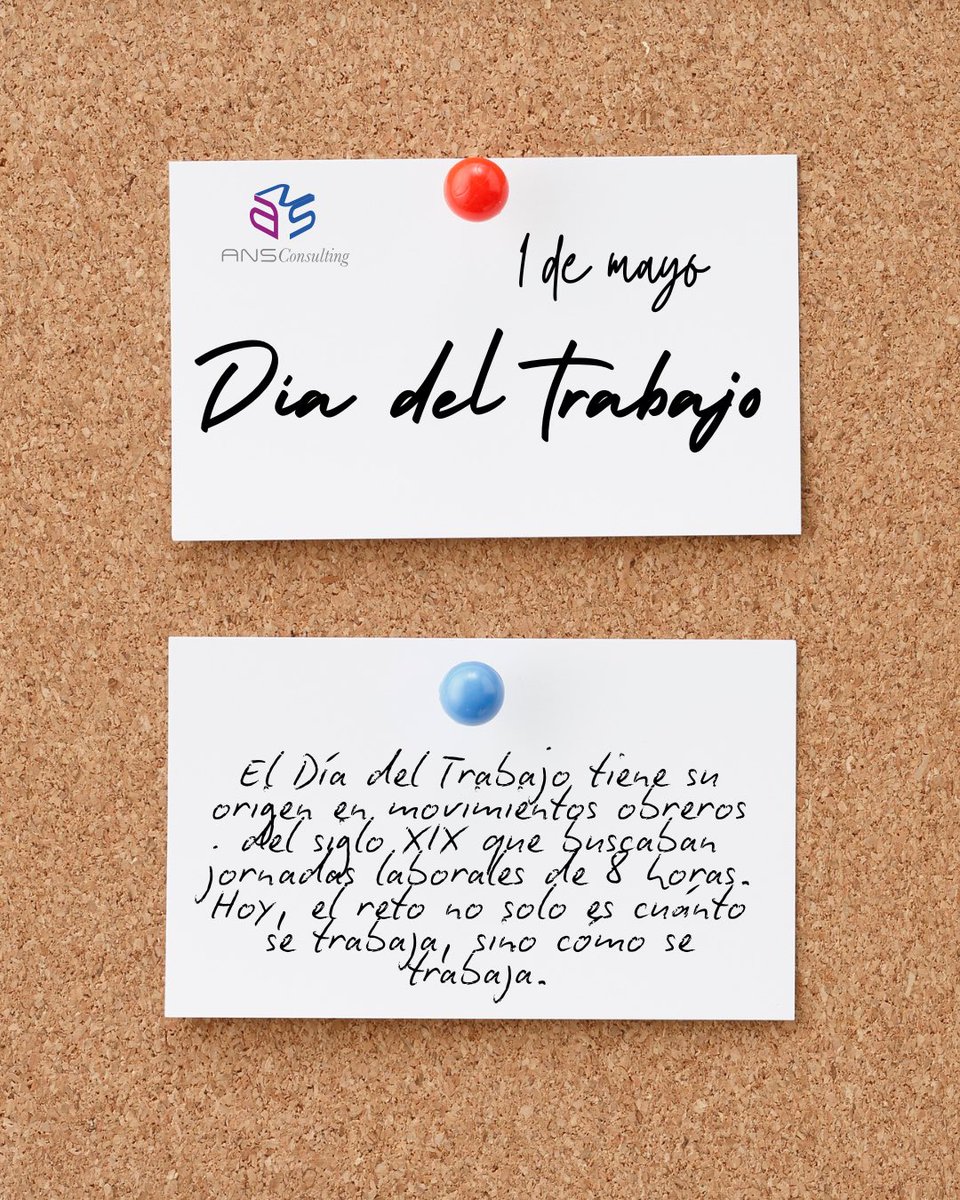 ANS
ANS Consulting
1 de mayo
Día del Trabajo
El Día del Trabajo tiene su
origen en movimientos obreros
. del siglo XIX que buscaban
jornadas laborales de 8 horas.
Hoy, el reto no solo es cuánto
se trabaja, sino cómo se
trabaja.